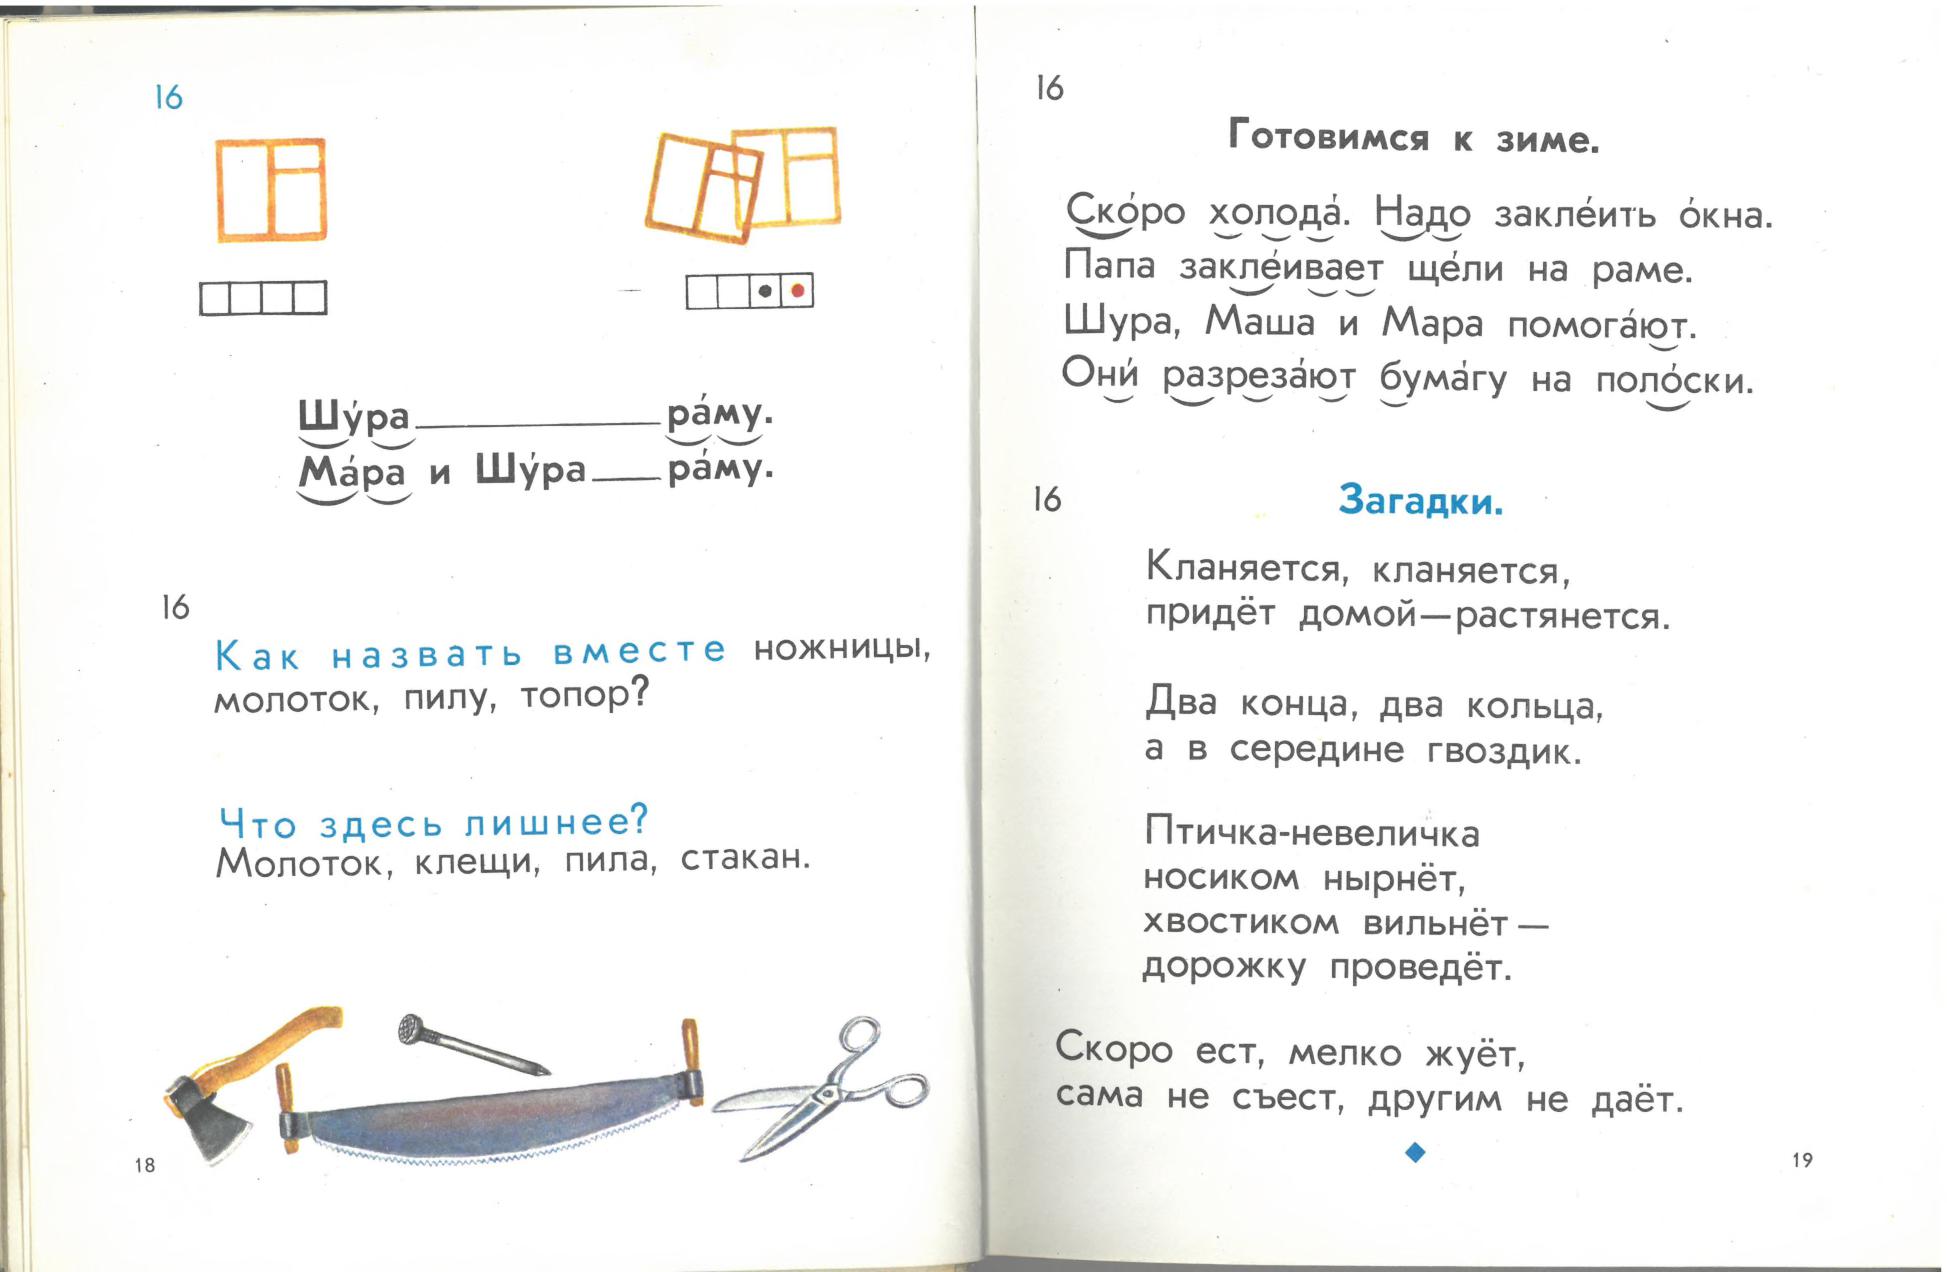 16
Шу́ра ра́му.
Ма́ра и Шу́ра ра́му.
16
Как назвать вместе ножницы,
молоток, пилу, топор?
Что здесь лишнее?
Молоток, клещи, пила, стакан.
18
16
Готовимся к зиме.
Ско́ро холода́. Надо закле́ить о́кна.
Папа закле́ивает ще́ли на раме.
Шура, Маша и Мара помога́ют.
Они́ разреза́ют бума́гу на поло́ски.
16
Загадки.
Кланяется, кланяется,
придёт домой—растянется.
Два конца, два кольца,
а в середине гвоздик.
Птичка-невеличка
носиком нырнёт,
хвостиком вильнёт—
дорожку проведёт.
Скоро ест, мелко жуёт,
сама не съест, другим не даёт.
19